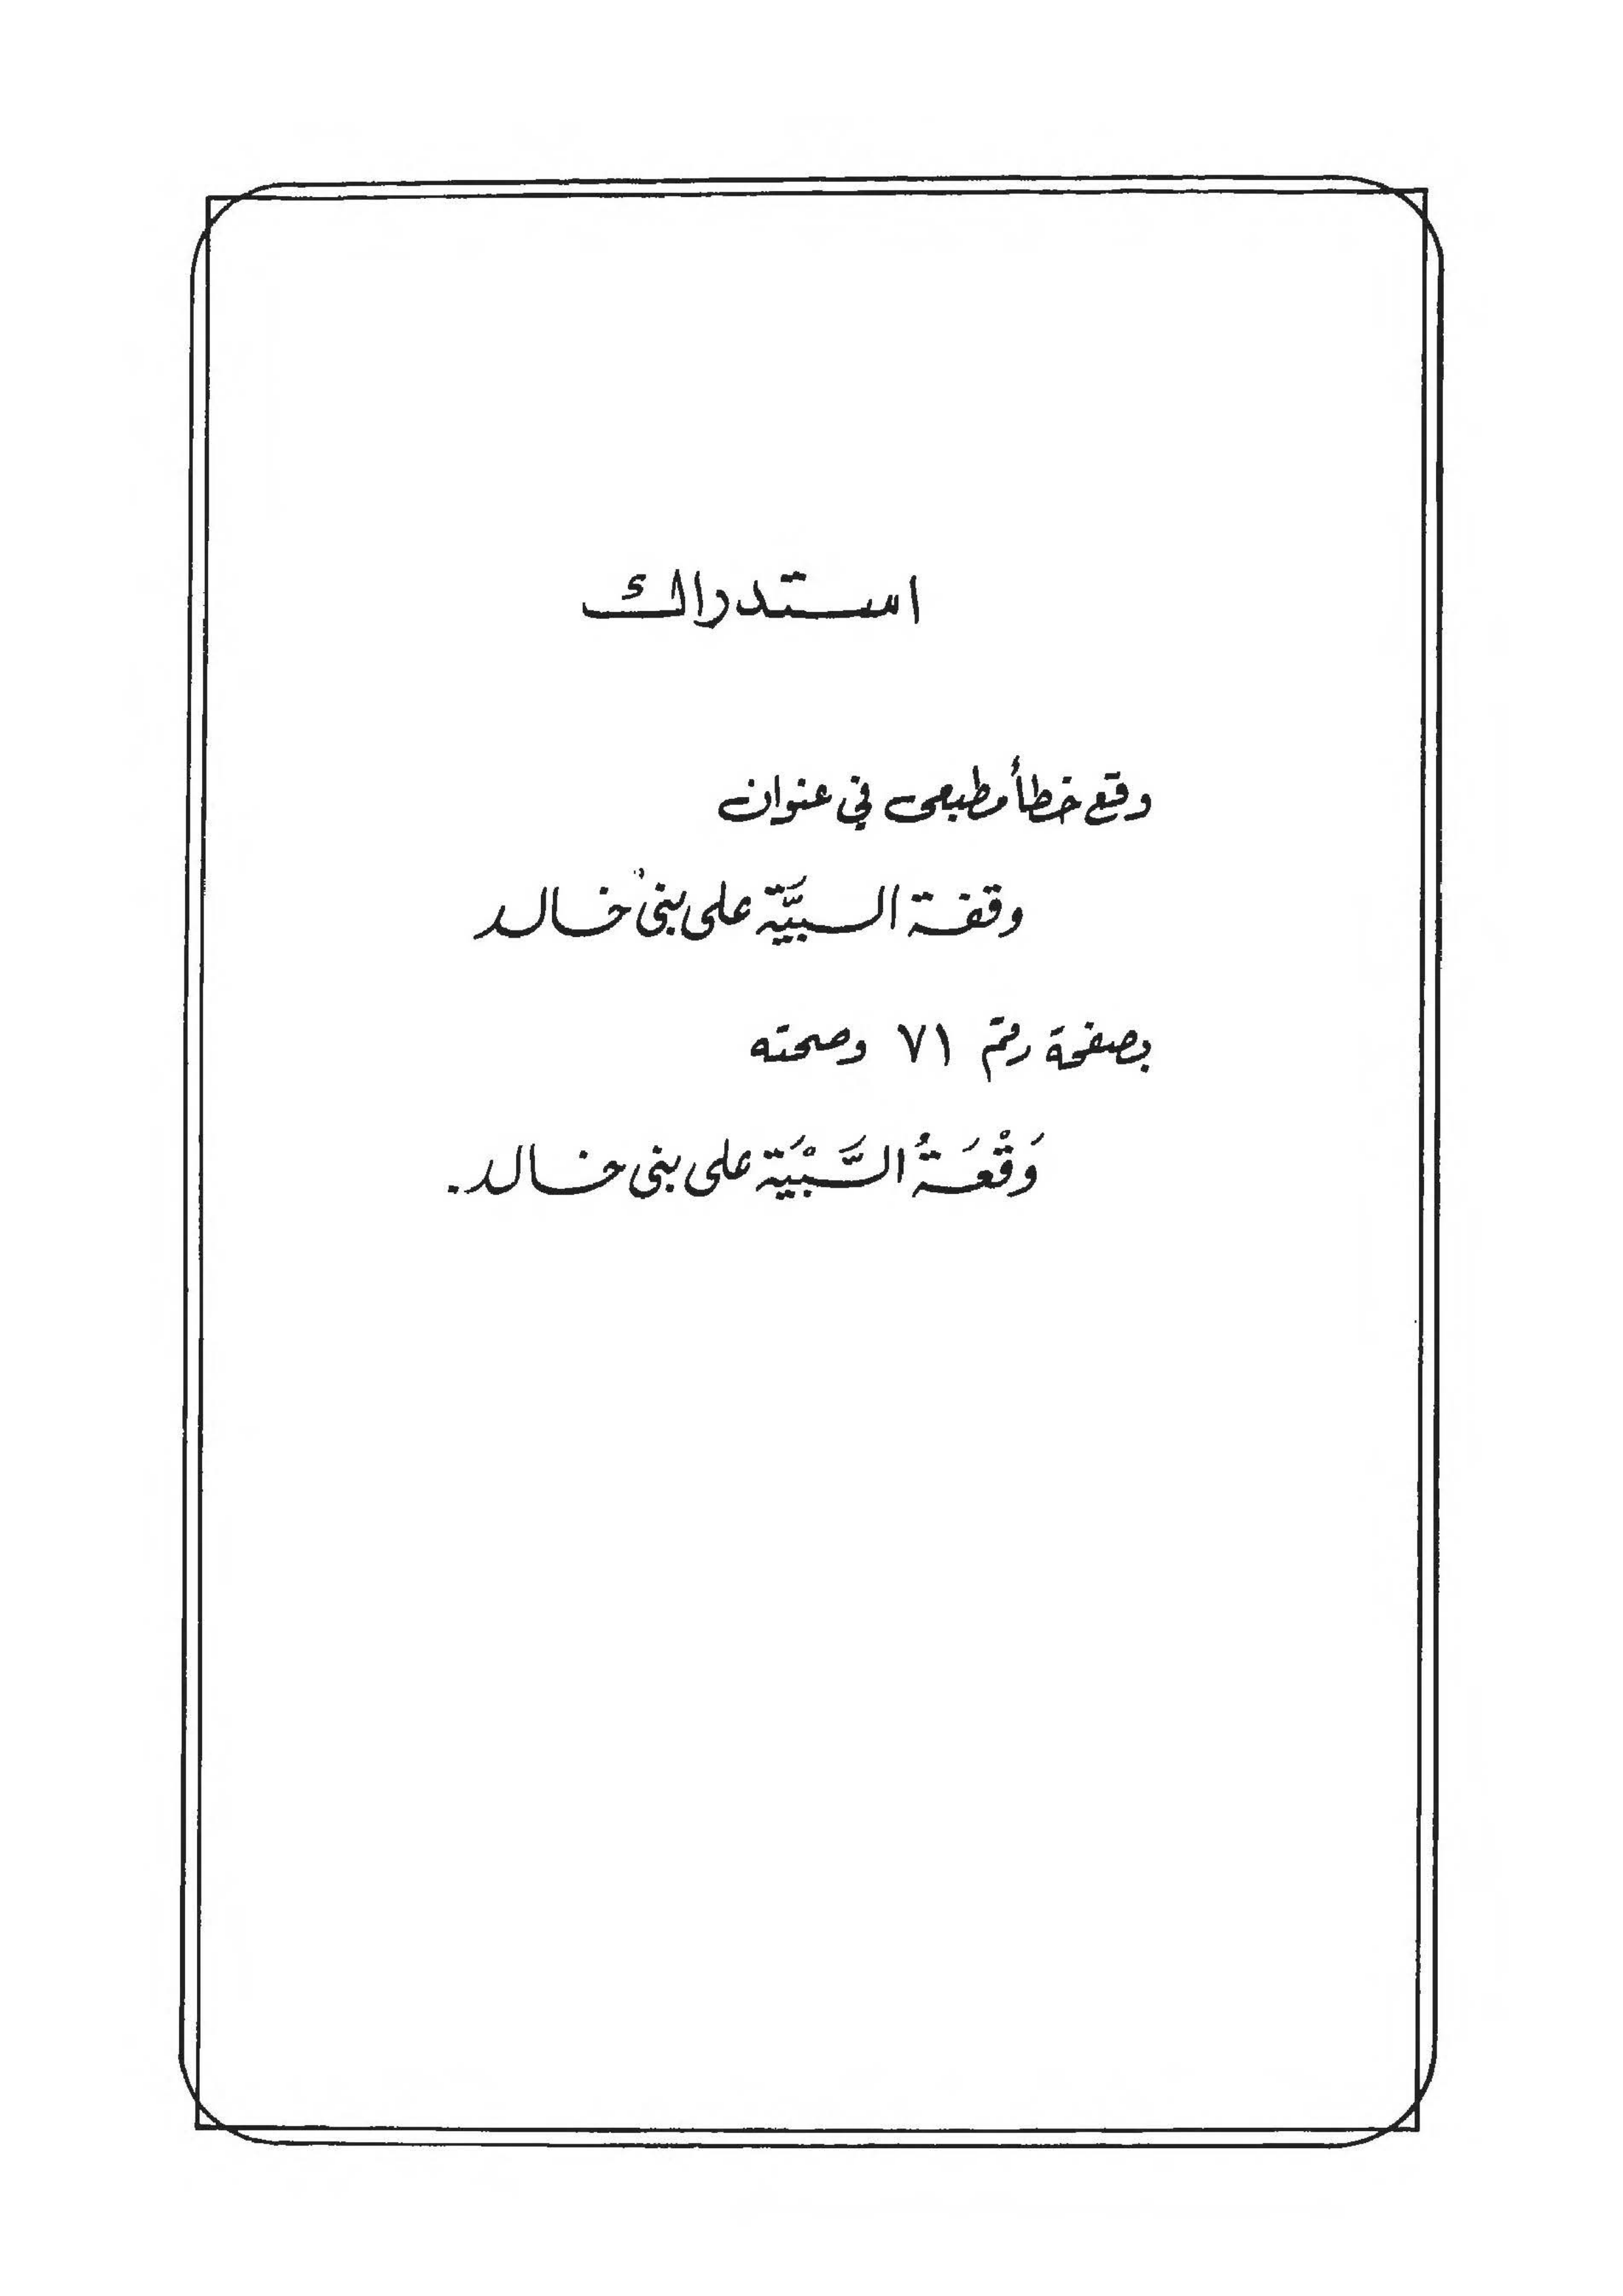 استدراك
وقع خطأ مطبعى في عنوان
وقفة السبيَّة على بنى خالد
بصفحة رقم ٧١ وصحته
وَقْعَةُ السَّبْيَة على بنى خالد.